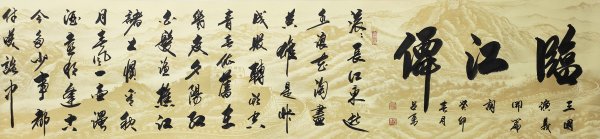 臨江僊
三國
演義
開篇
詞
癸卯
春月
滾滾長江東逝
水浪花淘盡
英雄是非
成敗轉頭空
青山依舊在
幾度夕陽紅
白髮漁樵江
渚上慣看秋
月春風一壺濁
酒喜相逢古
今多少事都
付笑談中